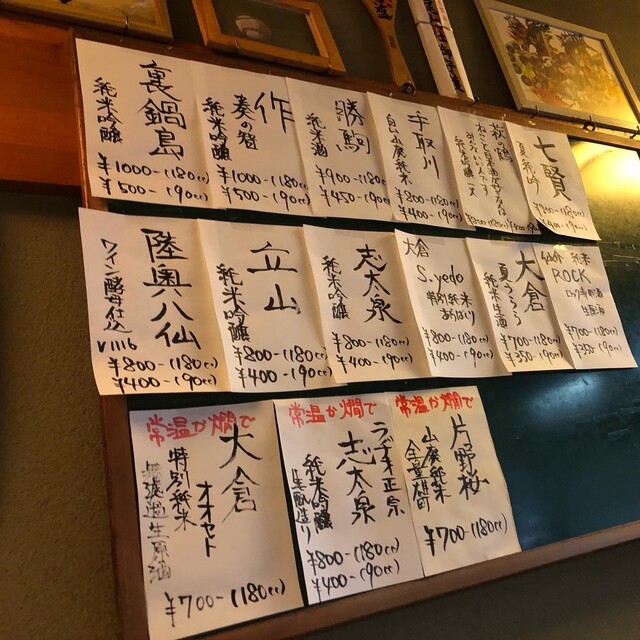 裏鍋島
純米吟醸
¥1000-(180cc)
¥500-(90cc)
作
奏の智
純米吟醸
¥1000-(180cc)
¥500-(90cc)
勝駒
純米酒
¥900-(180cc)
¥450-(90cc)
手取川
白山 山廃純米
¥800-(180cc)
¥400-(90cc)
萩の鶴
¥800-(180cc)
¥400-(90cc)
七賢
夏純吟
¥700-(180cc)
¥400-(90cc)
陸奥八仙
ワイン酵母仕込
V1116
¥800-(180cc)
¥400-(90cc)
立山
純米吟醸
¥800-(180cc)
¥400-(90cc)
志太泉
純米吟醸
¥800-(180cc)
¥400-(90cc)
大倉
S.yedo
特別純米
あらばしり
¥800-(180cc)
¥400-(90cc)
大倉
夏うらら
純米生酒
¥700-(180cc)
¥350-(90cc)
純米
ROCK
生原酒
¥700-(180cc)
¥350-(90cc)
常温か燗で
大倉
オオセト
特別純米
無濾過生原酒
¥700-(180cc)
常温か燗で
ラヂオ正宗
志太泉
純米吟醸
生酛造り
¥800-(180cc)
¥400-(90cc)
常温か燗で
片野桜
山廃純米
¥700-(180cc)